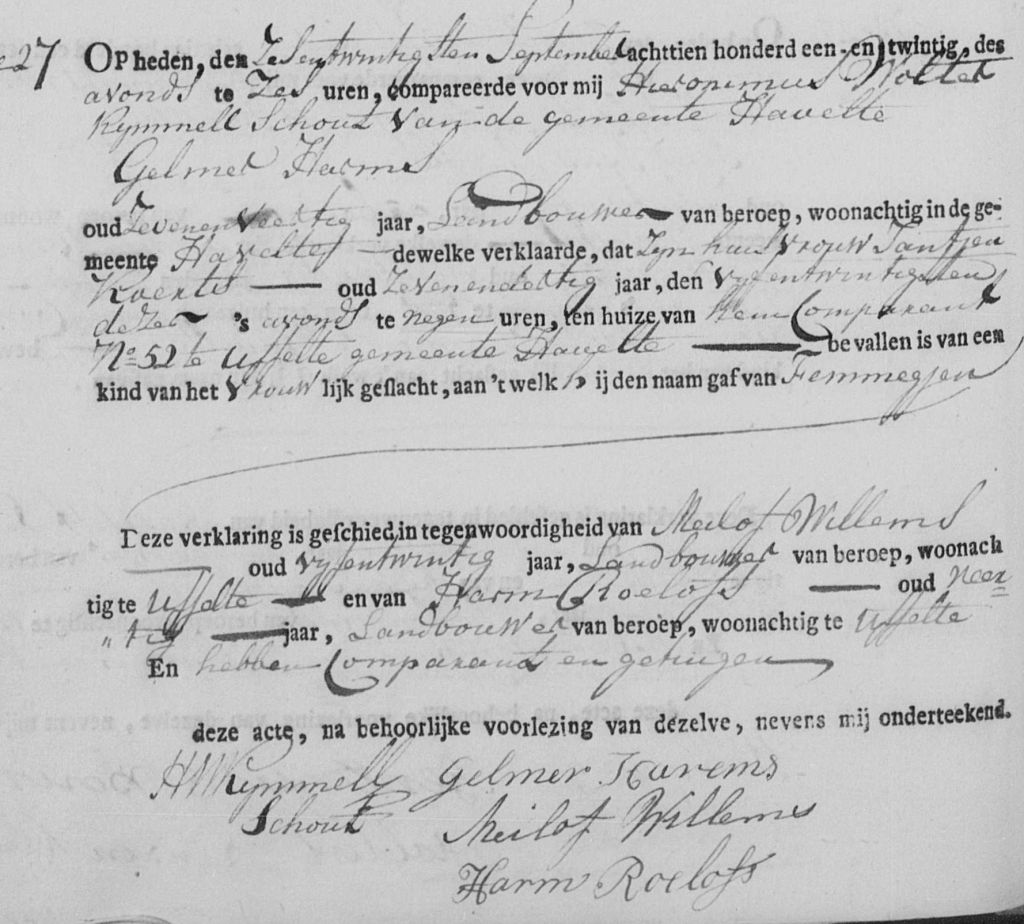 27
OP heden, den Zesentwintigsten September achttien honderd een-en-twintig, des
avonds te Zes uren, compareerde voor mij Hieronimus Wolter
Kymmell Schout van de gemeente Havelte
Gelmer Harms
oud Zevenenveertig jaar, Landbouwer van beroep, woonachtig in de ge-
meente Havelte dewelke verklaarde, dat Zyn huis Vrouw Jantjen
Koerts oud Zevenendertig jaar, den Vyfentwintigsten
dezer 's avonds te negen uren, ten huize van hem Comparant
No 52 te Uffelte gemeente Havelte bevallen is van een
kind van het Vrouwlijk geslacht, aan 't welk hij den naam gaf van Femmegjen
Deze verklaring is geschied in tegenwoordigheid van Meilof Willems
oud Vyfentwintig jaar, Landbouwer van beroep, woonach
tig te Uffelte en van Harm Roelofs oud Veer=
„tig jaar, Landbouwer van beroep, woonachtig te Uffelte
En hebben Comparant en getuigen
deze acte, na behoorlijke voorlezing van dezelve, nevens mij onderteekend.
HW Kymmell Gelmer Harems
Schout Meilof Willems
Harm Roelofs